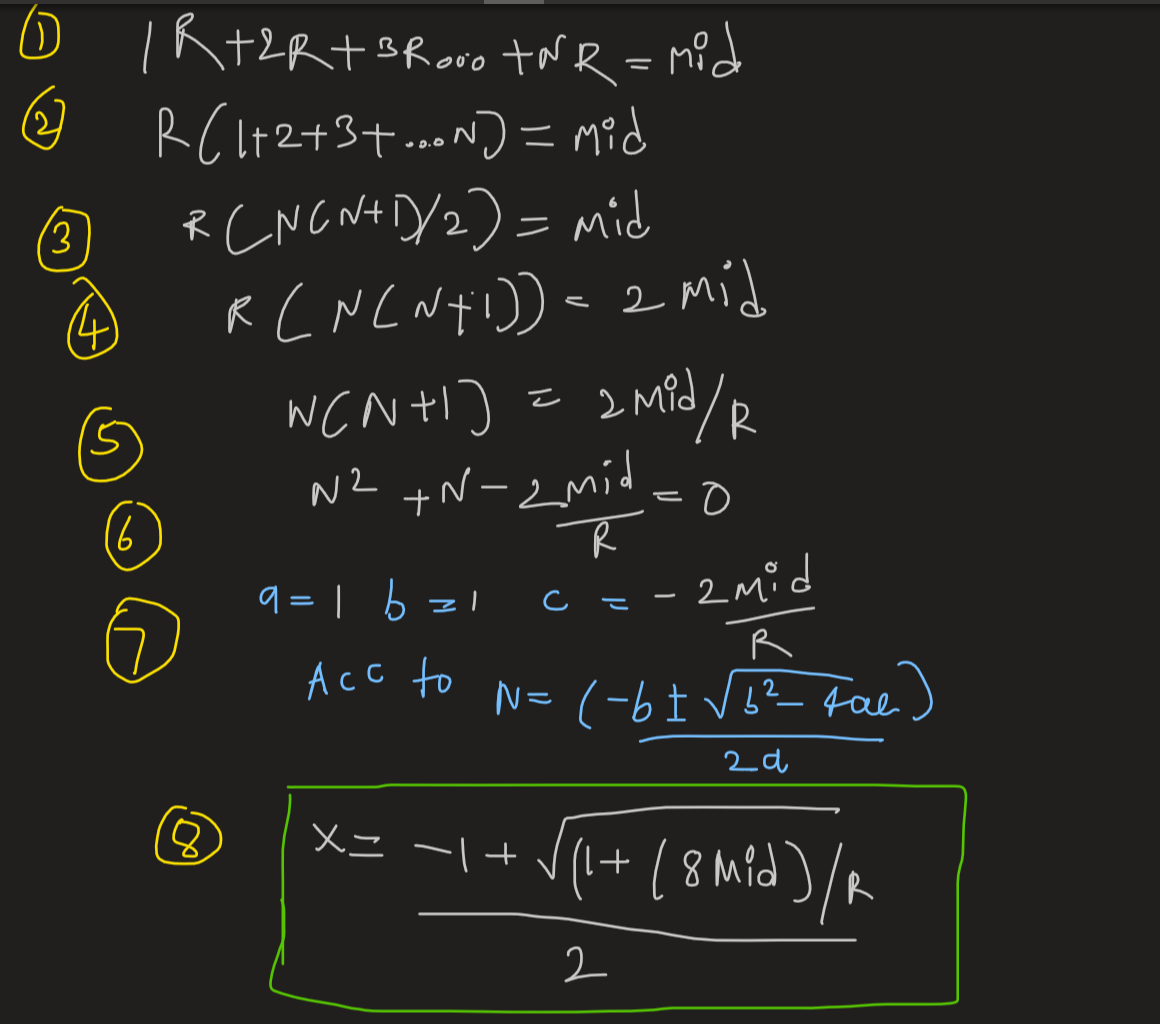 ① 1R+2R+3R...+NR = Mid
② R(1+2+3+....N) = Mid
③ R(N(N+1)/2) = Mid
④ R(N(N+1)) = 2 Mid
⑤ N(N+1) = 2 Mid/R
⑥ N² + N - 2Mid/R = 0
⑦ a=1 b=1 c = - 2Mid/R
Acc to N= (-b ± √b²-4ac)/2a
⑧ X = -1 + √(1 + (8 Mid)/R / 2